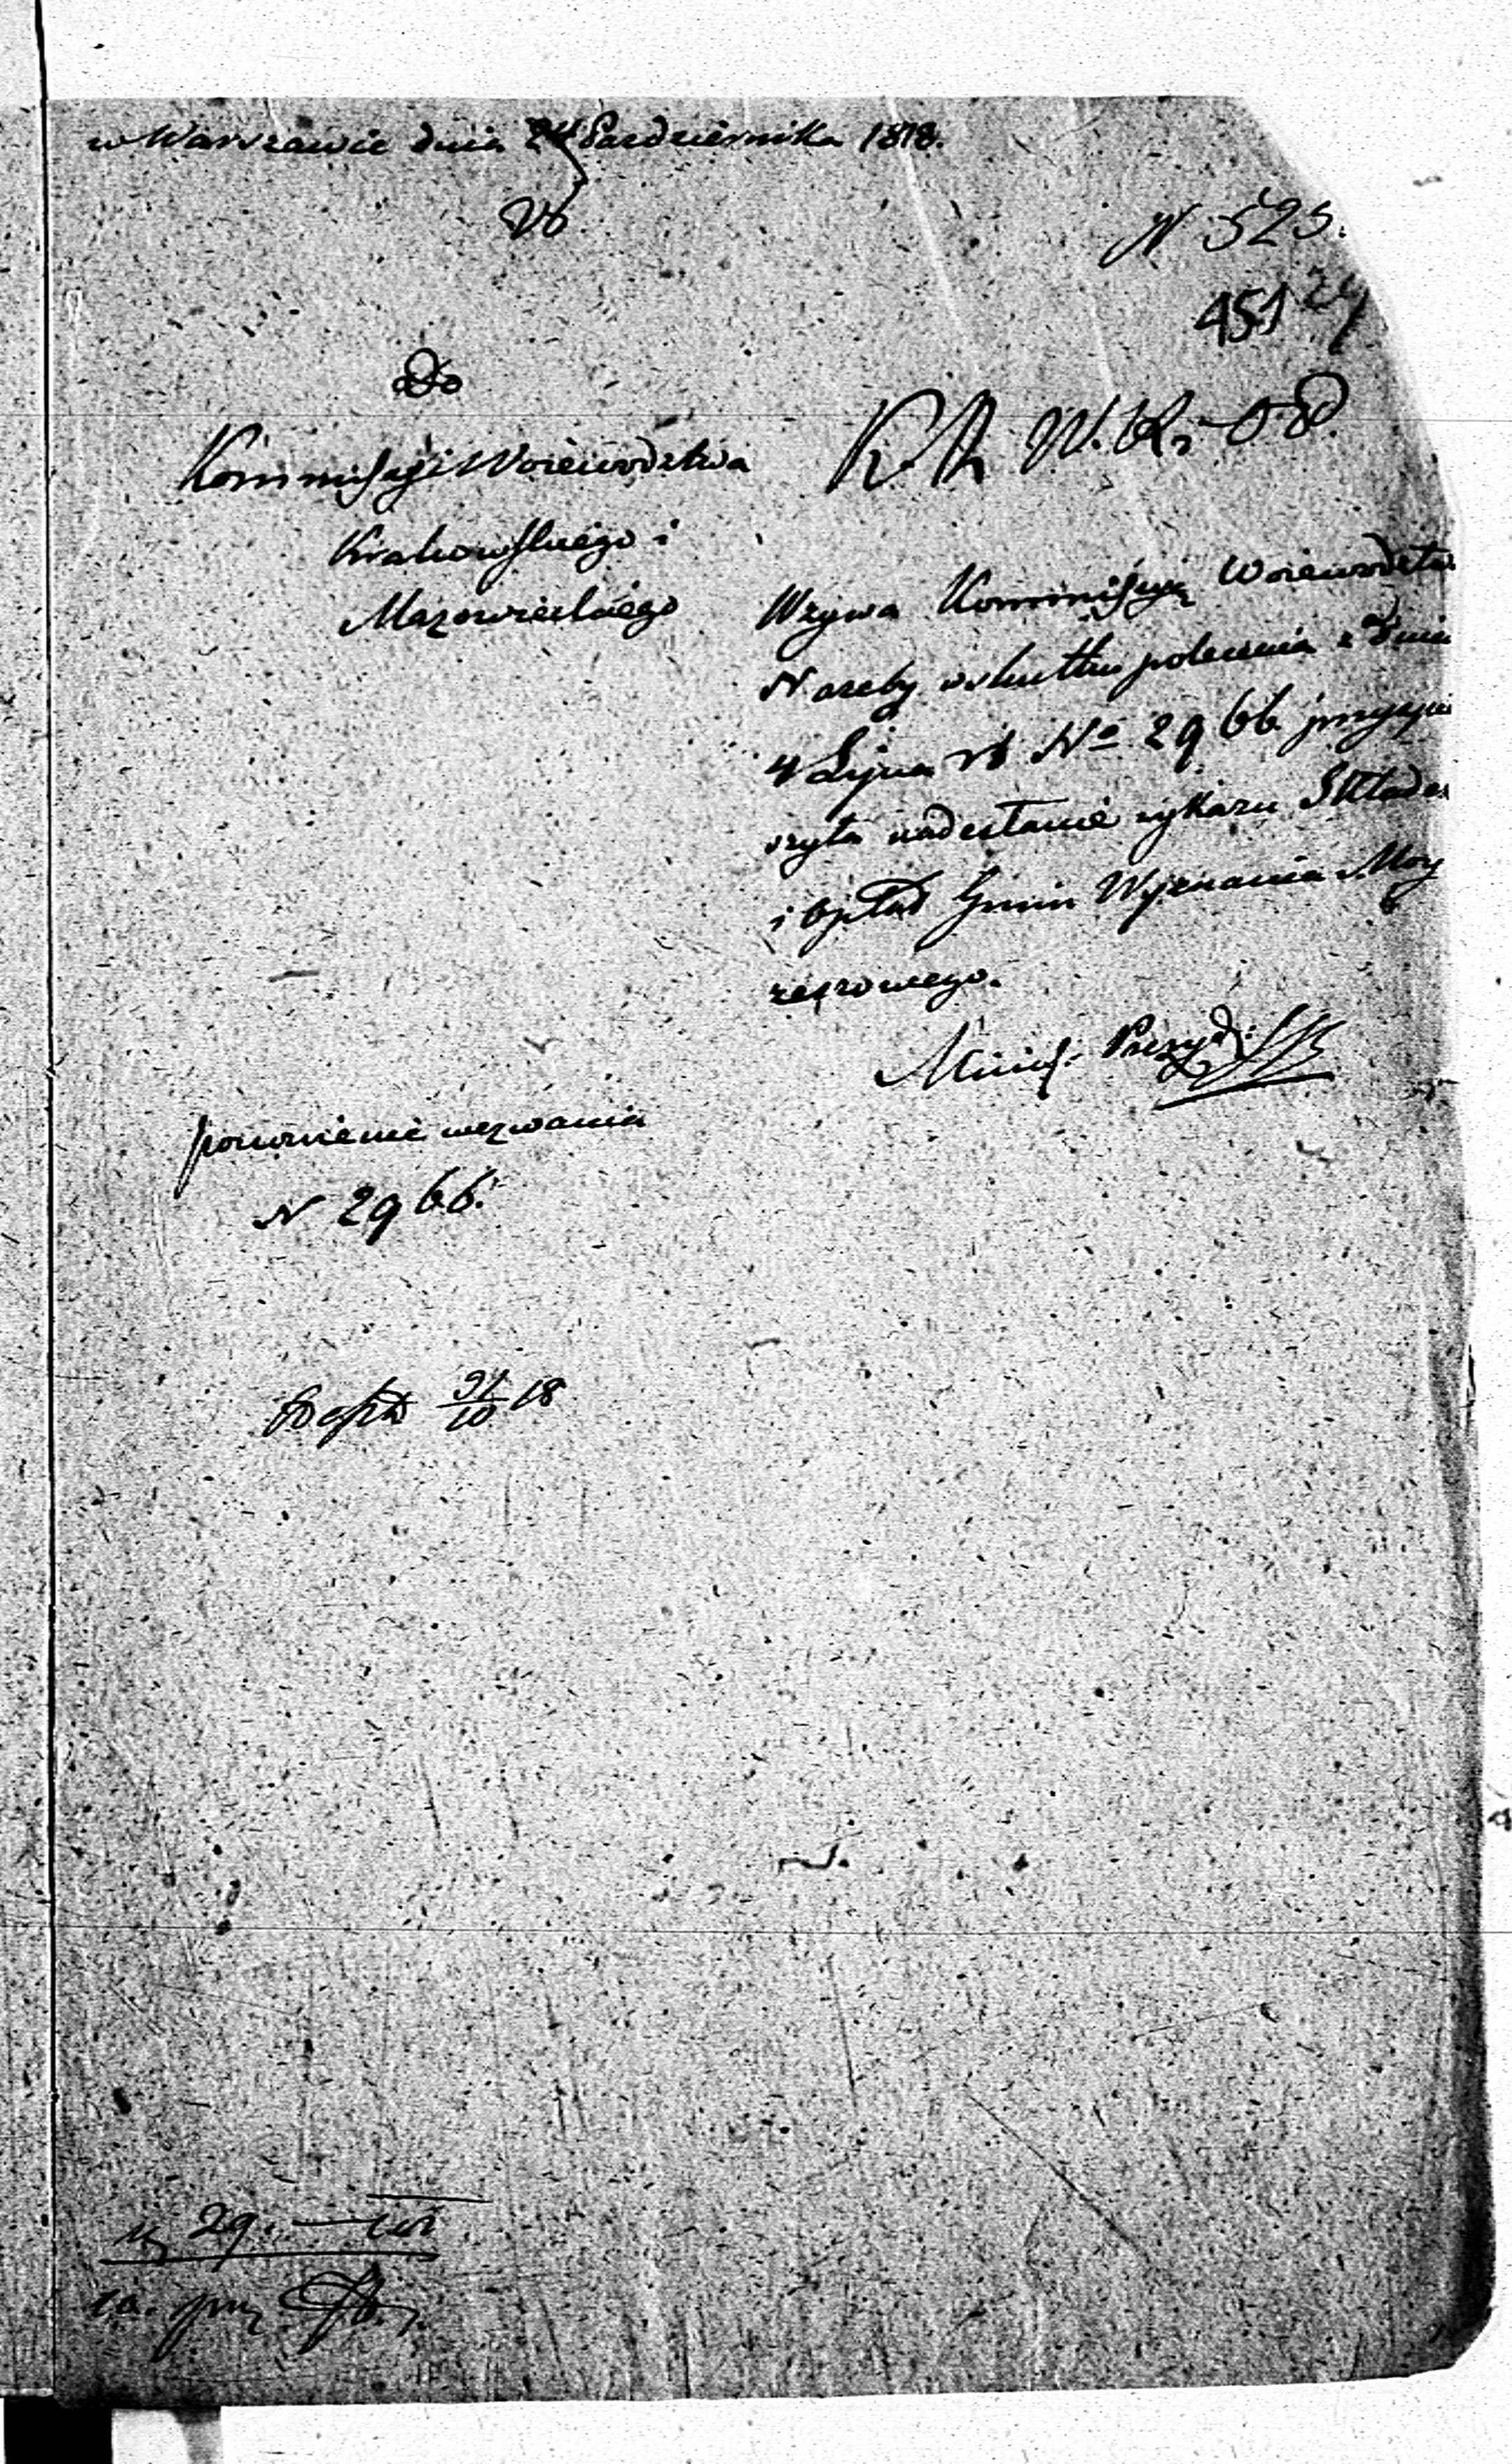 w Warszawie dnia 24 Pazdziernika 1818.
26
N 525.
451
Do
Kommissyi Woiewodztwa
Krakowskiego i
Mazowieckiego
K R W. R. i O P
Wzywa Kommissyą Woiewodztwa
N azeby wskutku polecenia z dnia
4 Lipca rb No 2966 przyspie
szyła nadesłanie wykazu Składek
i Opłat Gmin Wyznania Moy
zeszowego.
Minist: Prezyd:
ponowienie wezwania
N 2966.
Exped 31/10 18
29